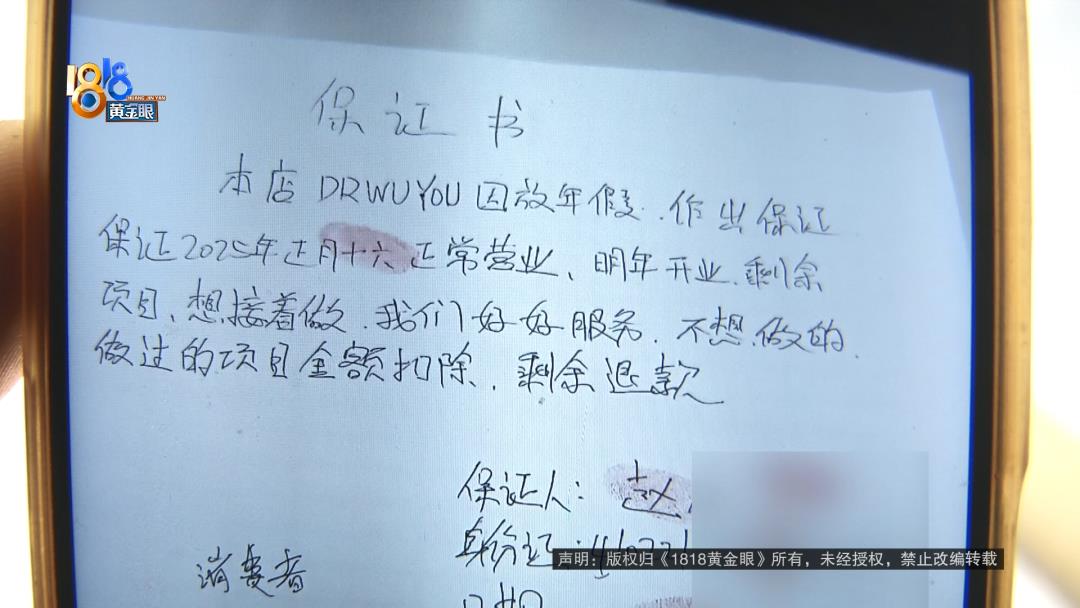 1818
HUANG JIN YAN
黄金眼
保证书
本店 DRWUYOU 因放年假、作出保证
保证2025年正月十六正常营业、明年开业、剩余
项目、想接着做、我们好好服务、不想做的、
做过的项目金额扣除、剩余退款
保证人：赵
身份证：
消费者
日期
声明：版权归《1818黄金眼》所有，未经授权，禁止改编转载